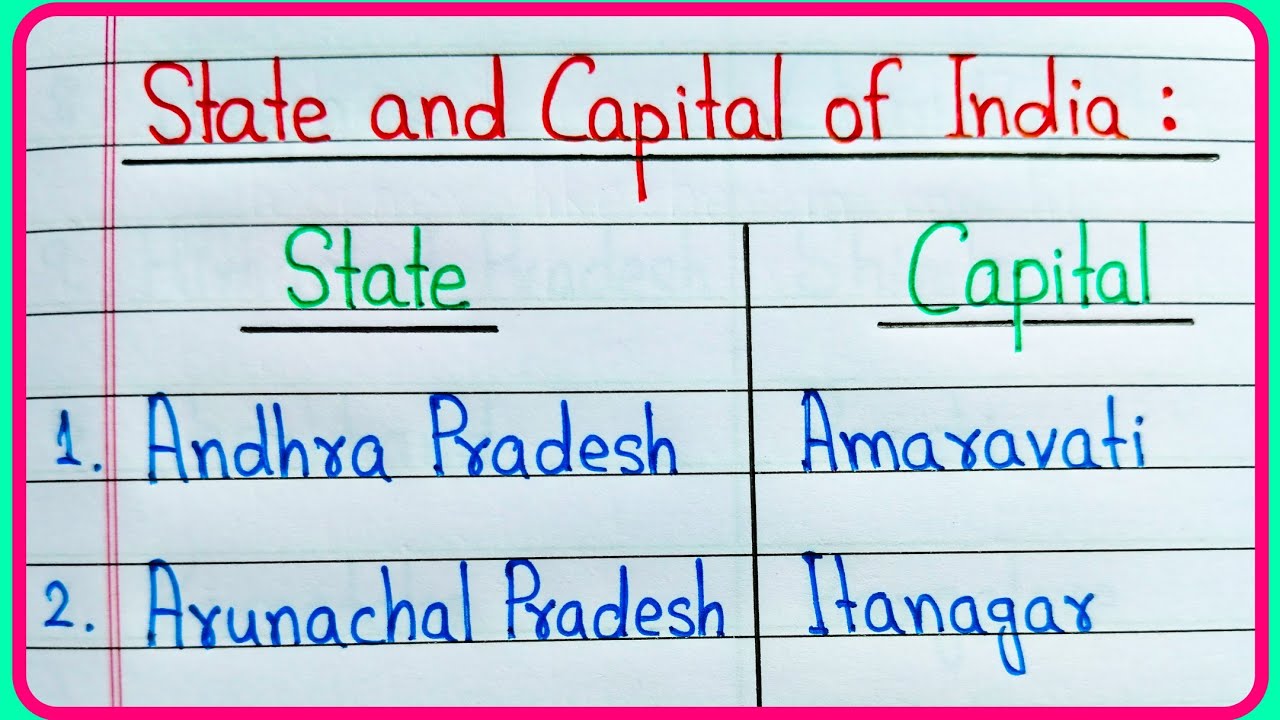 State and Capital of India :
State Capital
1. Andhra Pradesh Amaravati
2. Arunachal Pradesh Itanagar